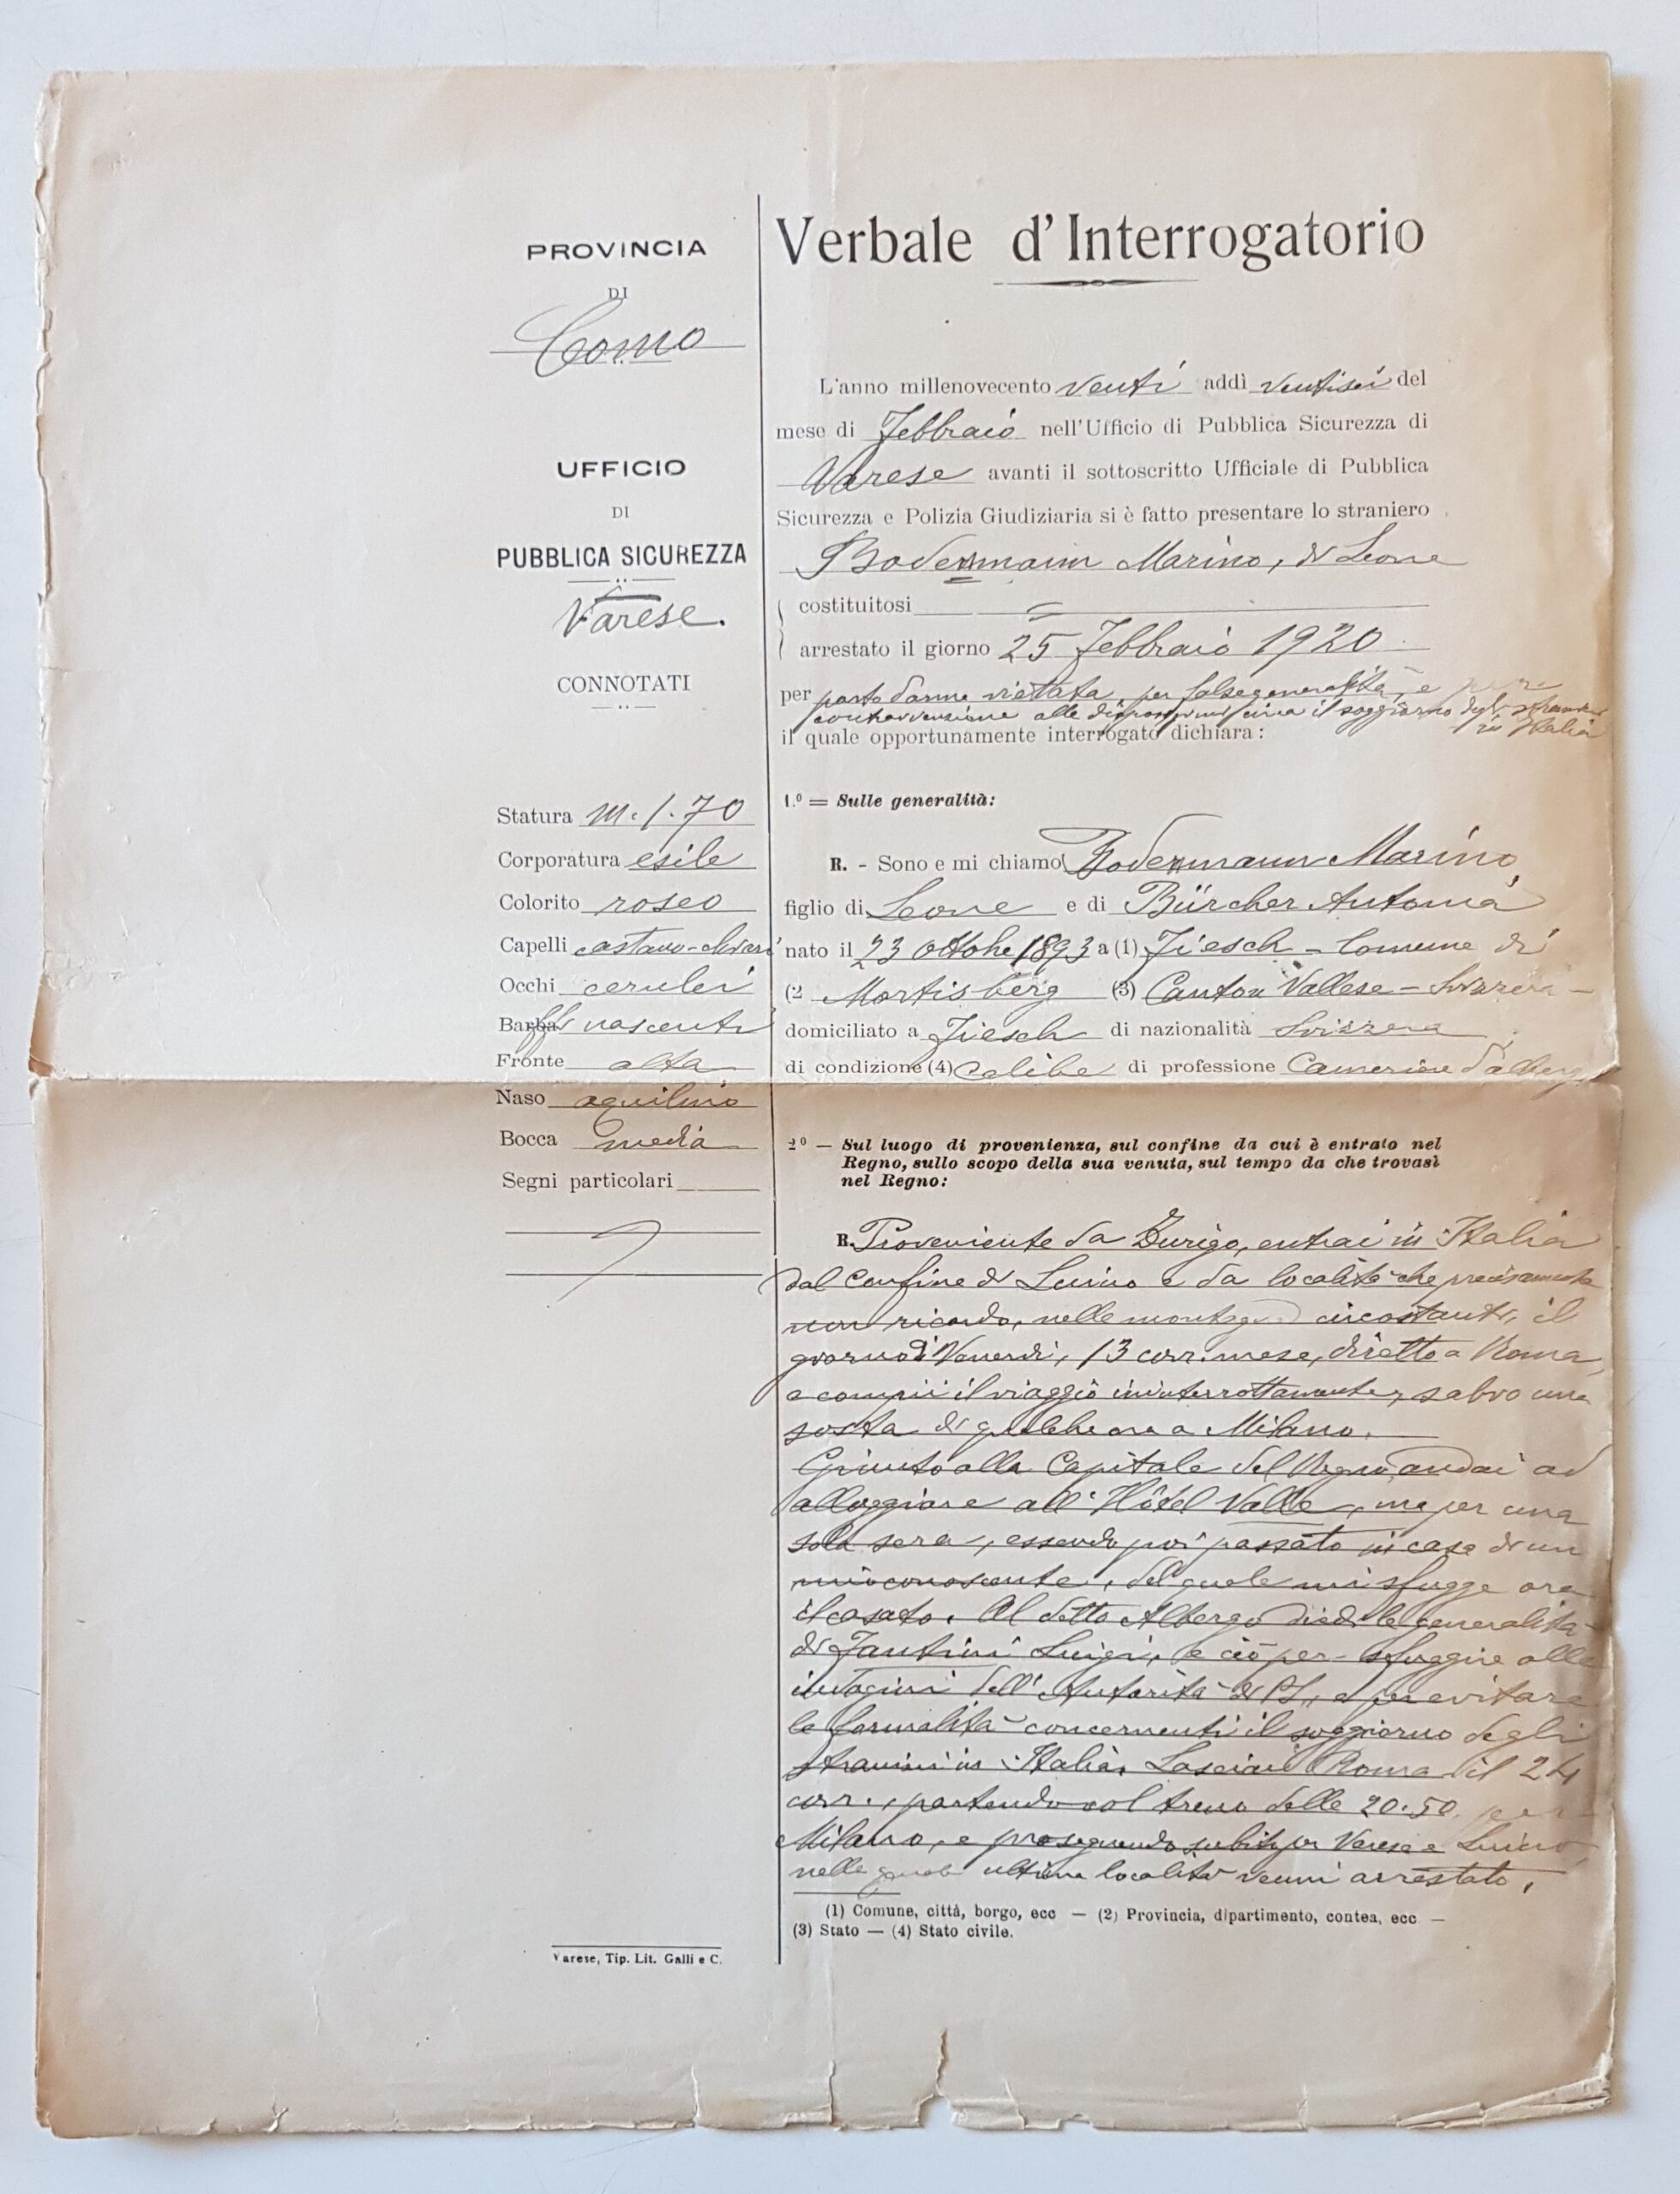 PROVINCIA
DI
Como
UFFICIO
DI
PUBBLICA SICUREZZA
Varese.
CONNOTATI
Statura m. 1.70
Corporatura esile
Colorito roseo
Capelli castano-chiari
Occhi cerulei
Barba baffi nascenti
Fronte alta
Naso aquilino
Bocca media
Segni particolari
Varese, Tip. Lit. Galli e C.
Verbale d'Interrogatorio
L'anno millenovecento venti addì ventisei del
mese di Febbraio nell'Ufficio di Pubblica Sicurezza di
Varese avanti il sottoscritto Ufficiale di Pubblica
Sicurezza e Polizia Giudiziaria si è fatto presentare lo straniero
Bodenmann Marino, di Leone
costituitosi =
arrestato il giorno 25 Febbraio 1920
per porto d'arma vietata, per false generalità, e per
contravvenzione alle disposizioni circa il soggiorno degli stranieri
in Italia
il quale opportunamente interrogato dichiara:
1.º = Sulle generalità:
R. - Sono e mi chiamo Bodenmann Marino
figlio di Leone e di Bürcher Antonia
nato il 23 ottobre 1893 a (1) Fiesch - Comune di
(2 Martisberg (3) Canton Vallese - Svizzera -
domiciliato a Fiesch di nazionalità Svizzera
di condizione (4) Celibe di professione Cameriere d'alberg
2º — Sul luogo di provenienza, sul confine da cui è entrato nel
Regno, sullo scopo della sua venuta, sul tempo da che trovasi
nel Regno:
R. Proveniente da Zurigo, entrai in Italia
dal confine di Luino e da località che precisamente
non ricordo, nelle montagne circostanti, il
giorno di Venerdì, 13 corr. mese, diretto a Roma,
e compii il viaggio ininterrottamente, salvo una
sosta di qualche ora a Milano.
Giunto alla Capitale del Regno andai ad
alloggiare all'Hôtel Valle, ma per una
sola sera, essendo poi passato in casa di un
mio conoscente, del quale mi sfugge ora
il casato. Al detto Albergo diedi le generalità
di Fantini Luigi, e ciò per sfuggire alle
indagini dell'Autorità di PS, e per evitare
le formalità concernenti il soggiorno degli
stranieri in Italia. Lasciai Roma il 24
corr., partendo col treno delle 20.50, per
Milano, e proseguendo subito per Varese e Luino,
nella quale ultima località venni arrestato,
(1) Comune, città, borgo, ecc — (2) Provincia, dipartimento, contea, ecc —
(3) Stato — (4) Stato civile.